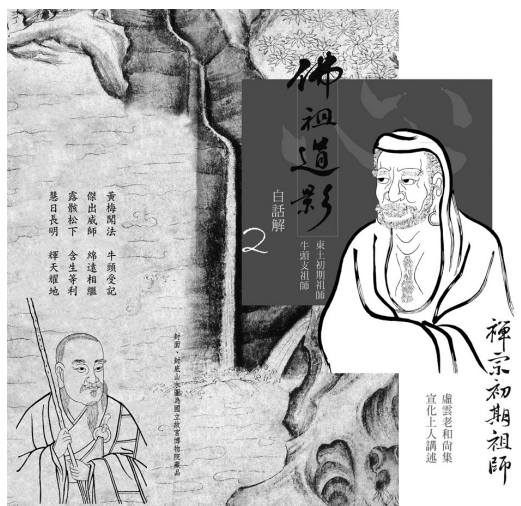 佛祖道影
白話解
2
東土初期祖師
牛頭支祖師
禪宗初期祖師
虛雲老和尚集
宣化上人講述
黃梅聞法　牛頭受記
傑出威師　綿遠相繼
露骸松下　含生等利
慧日長明　輝天耀地
封面、封底山水圖為國立故宮博物院藏品